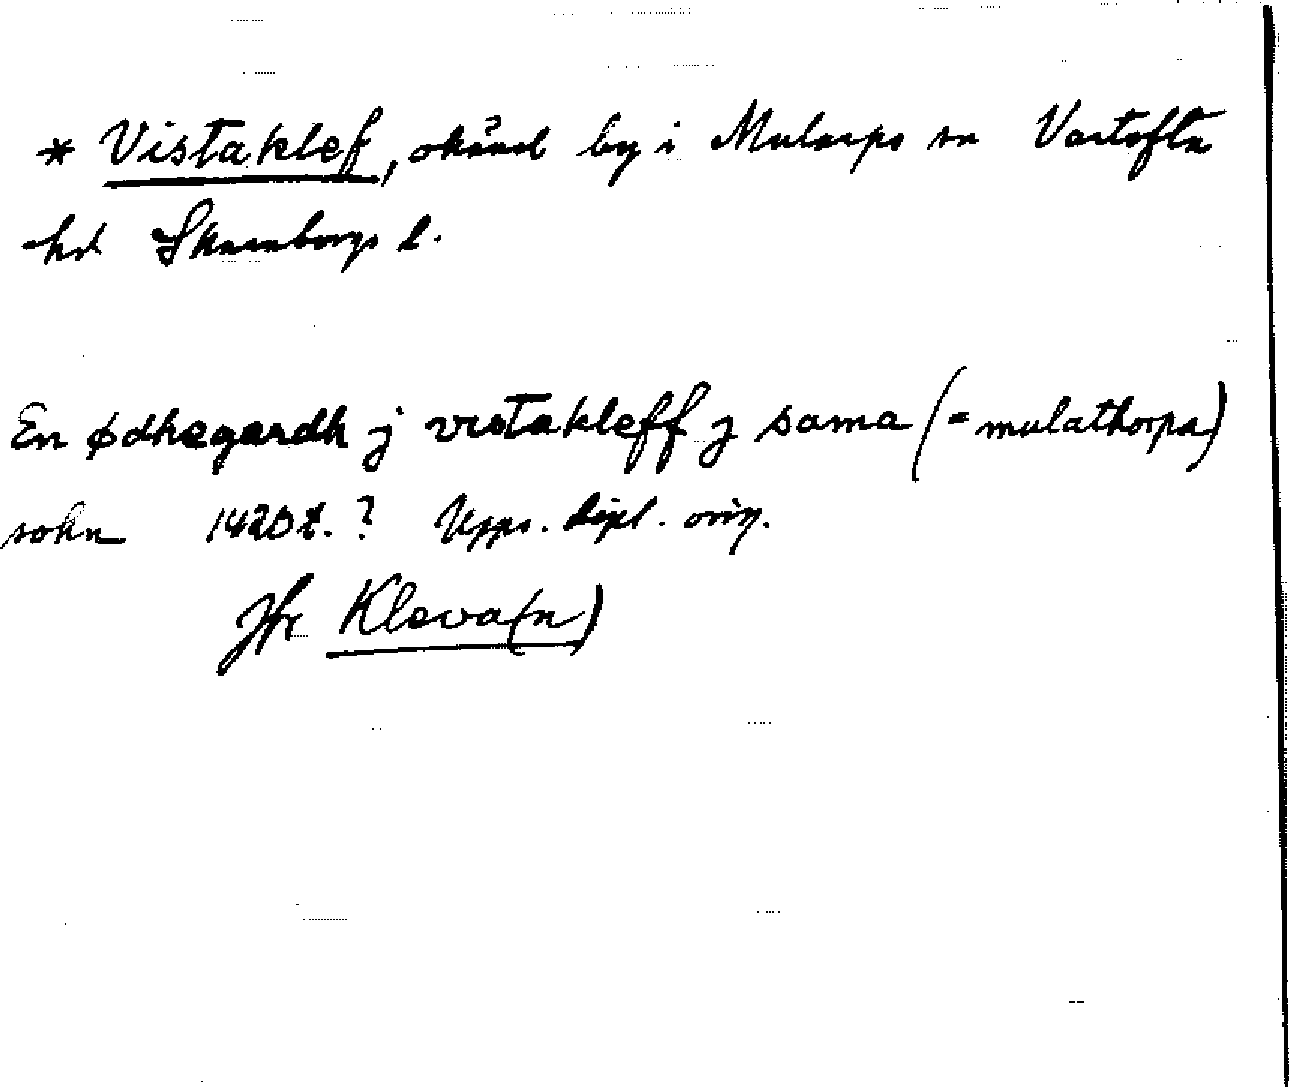 * Vistaklef, okänd by i Mularps sn Vartofta
hd Skaraborgs l.
En ødhegardh j vistakleff j sama (= mulathorpa)
sokn 1420 t. ? Upps. dipl. orig.
Jfr Kleva(n)